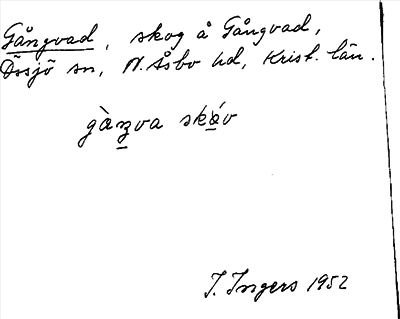 Gångvad, skog å Gångvad,
Össjö sn, N. Åsbo hd, Krist. län.
gàŋva skáv
I. Ingers 1952